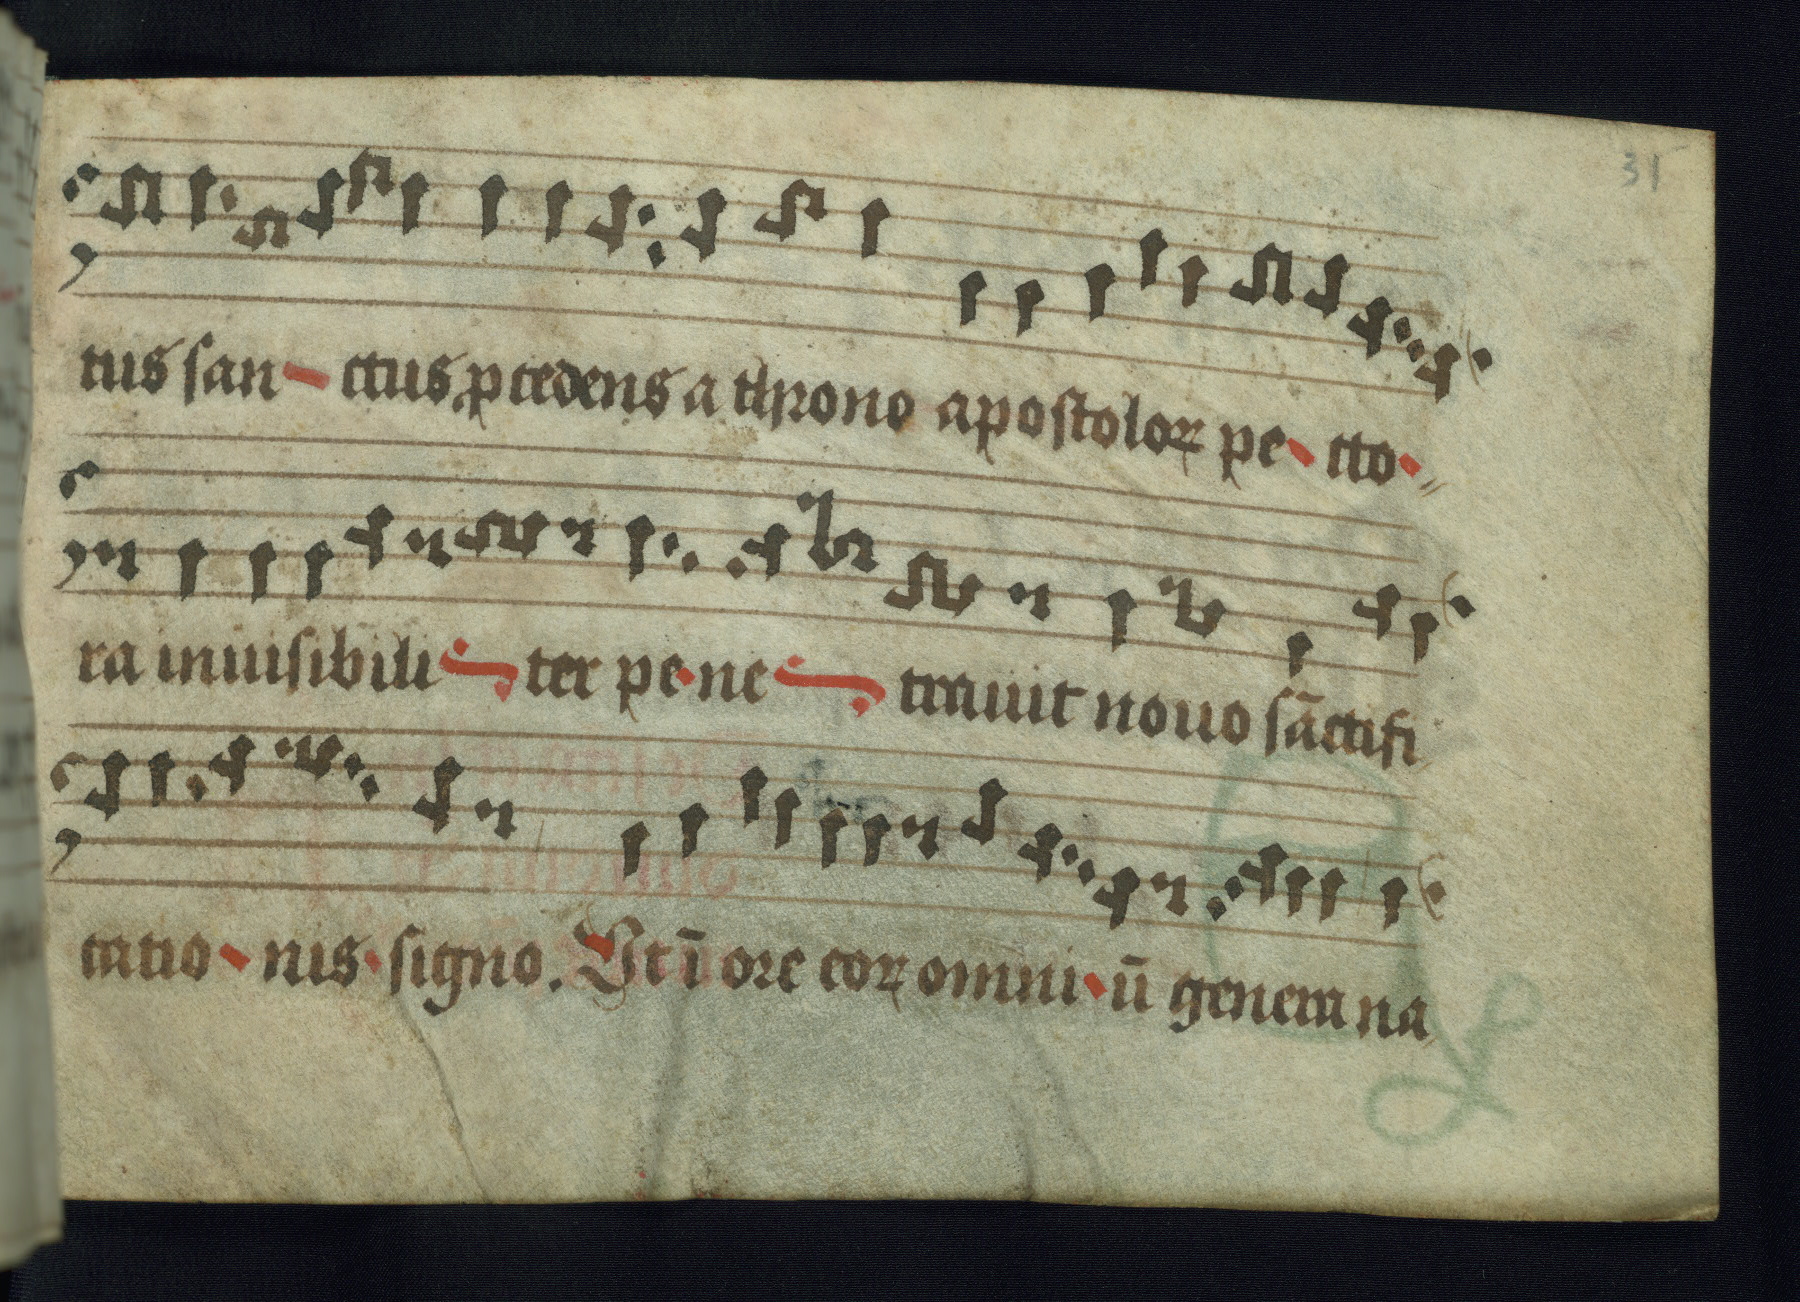 31
tus san ctus ꝓcedens a throno apostoloꝝ pe cto
ra inuisibili ter pe ne trauit nouo sāctifi
catio nis signo. Vt ī ore eoꝝ omni ū genera na